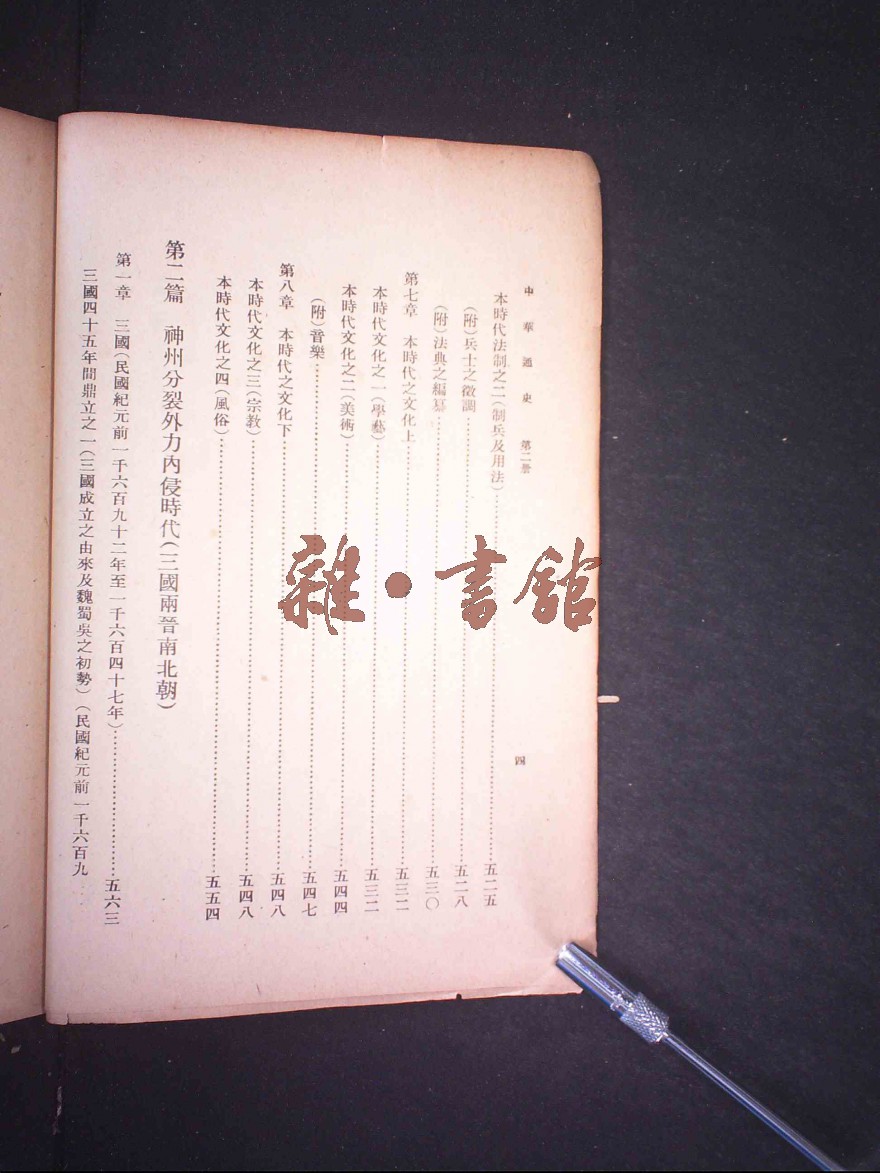 中華通史 第二册 四
本時代法制之二(制兵及用法)……五二五
(附)兵士之徵調……五二八
(附)法典之編纂……五三〇
第七章 本時代之文化上……五三二
本時代文化之一(學藝)……五三二
本時代文化之二(美術)……五四四
(附)音樂……五四七
第八章 本時代之文化下……五四八
本時代文化之三(宗教)……五四八
本時代文化之四(風俗)……五五四
第二篇 神州分裂外力內侵時代(三國兩晉南北朝)
第一章 三國(民國紀元前一千六百九十二年至一千六百四十七年)……五六三
三國四十五年間鼎立之一(三國成立之由來及魏蜀吳之初勢)(民國紀元前一千六百九
雜·書館